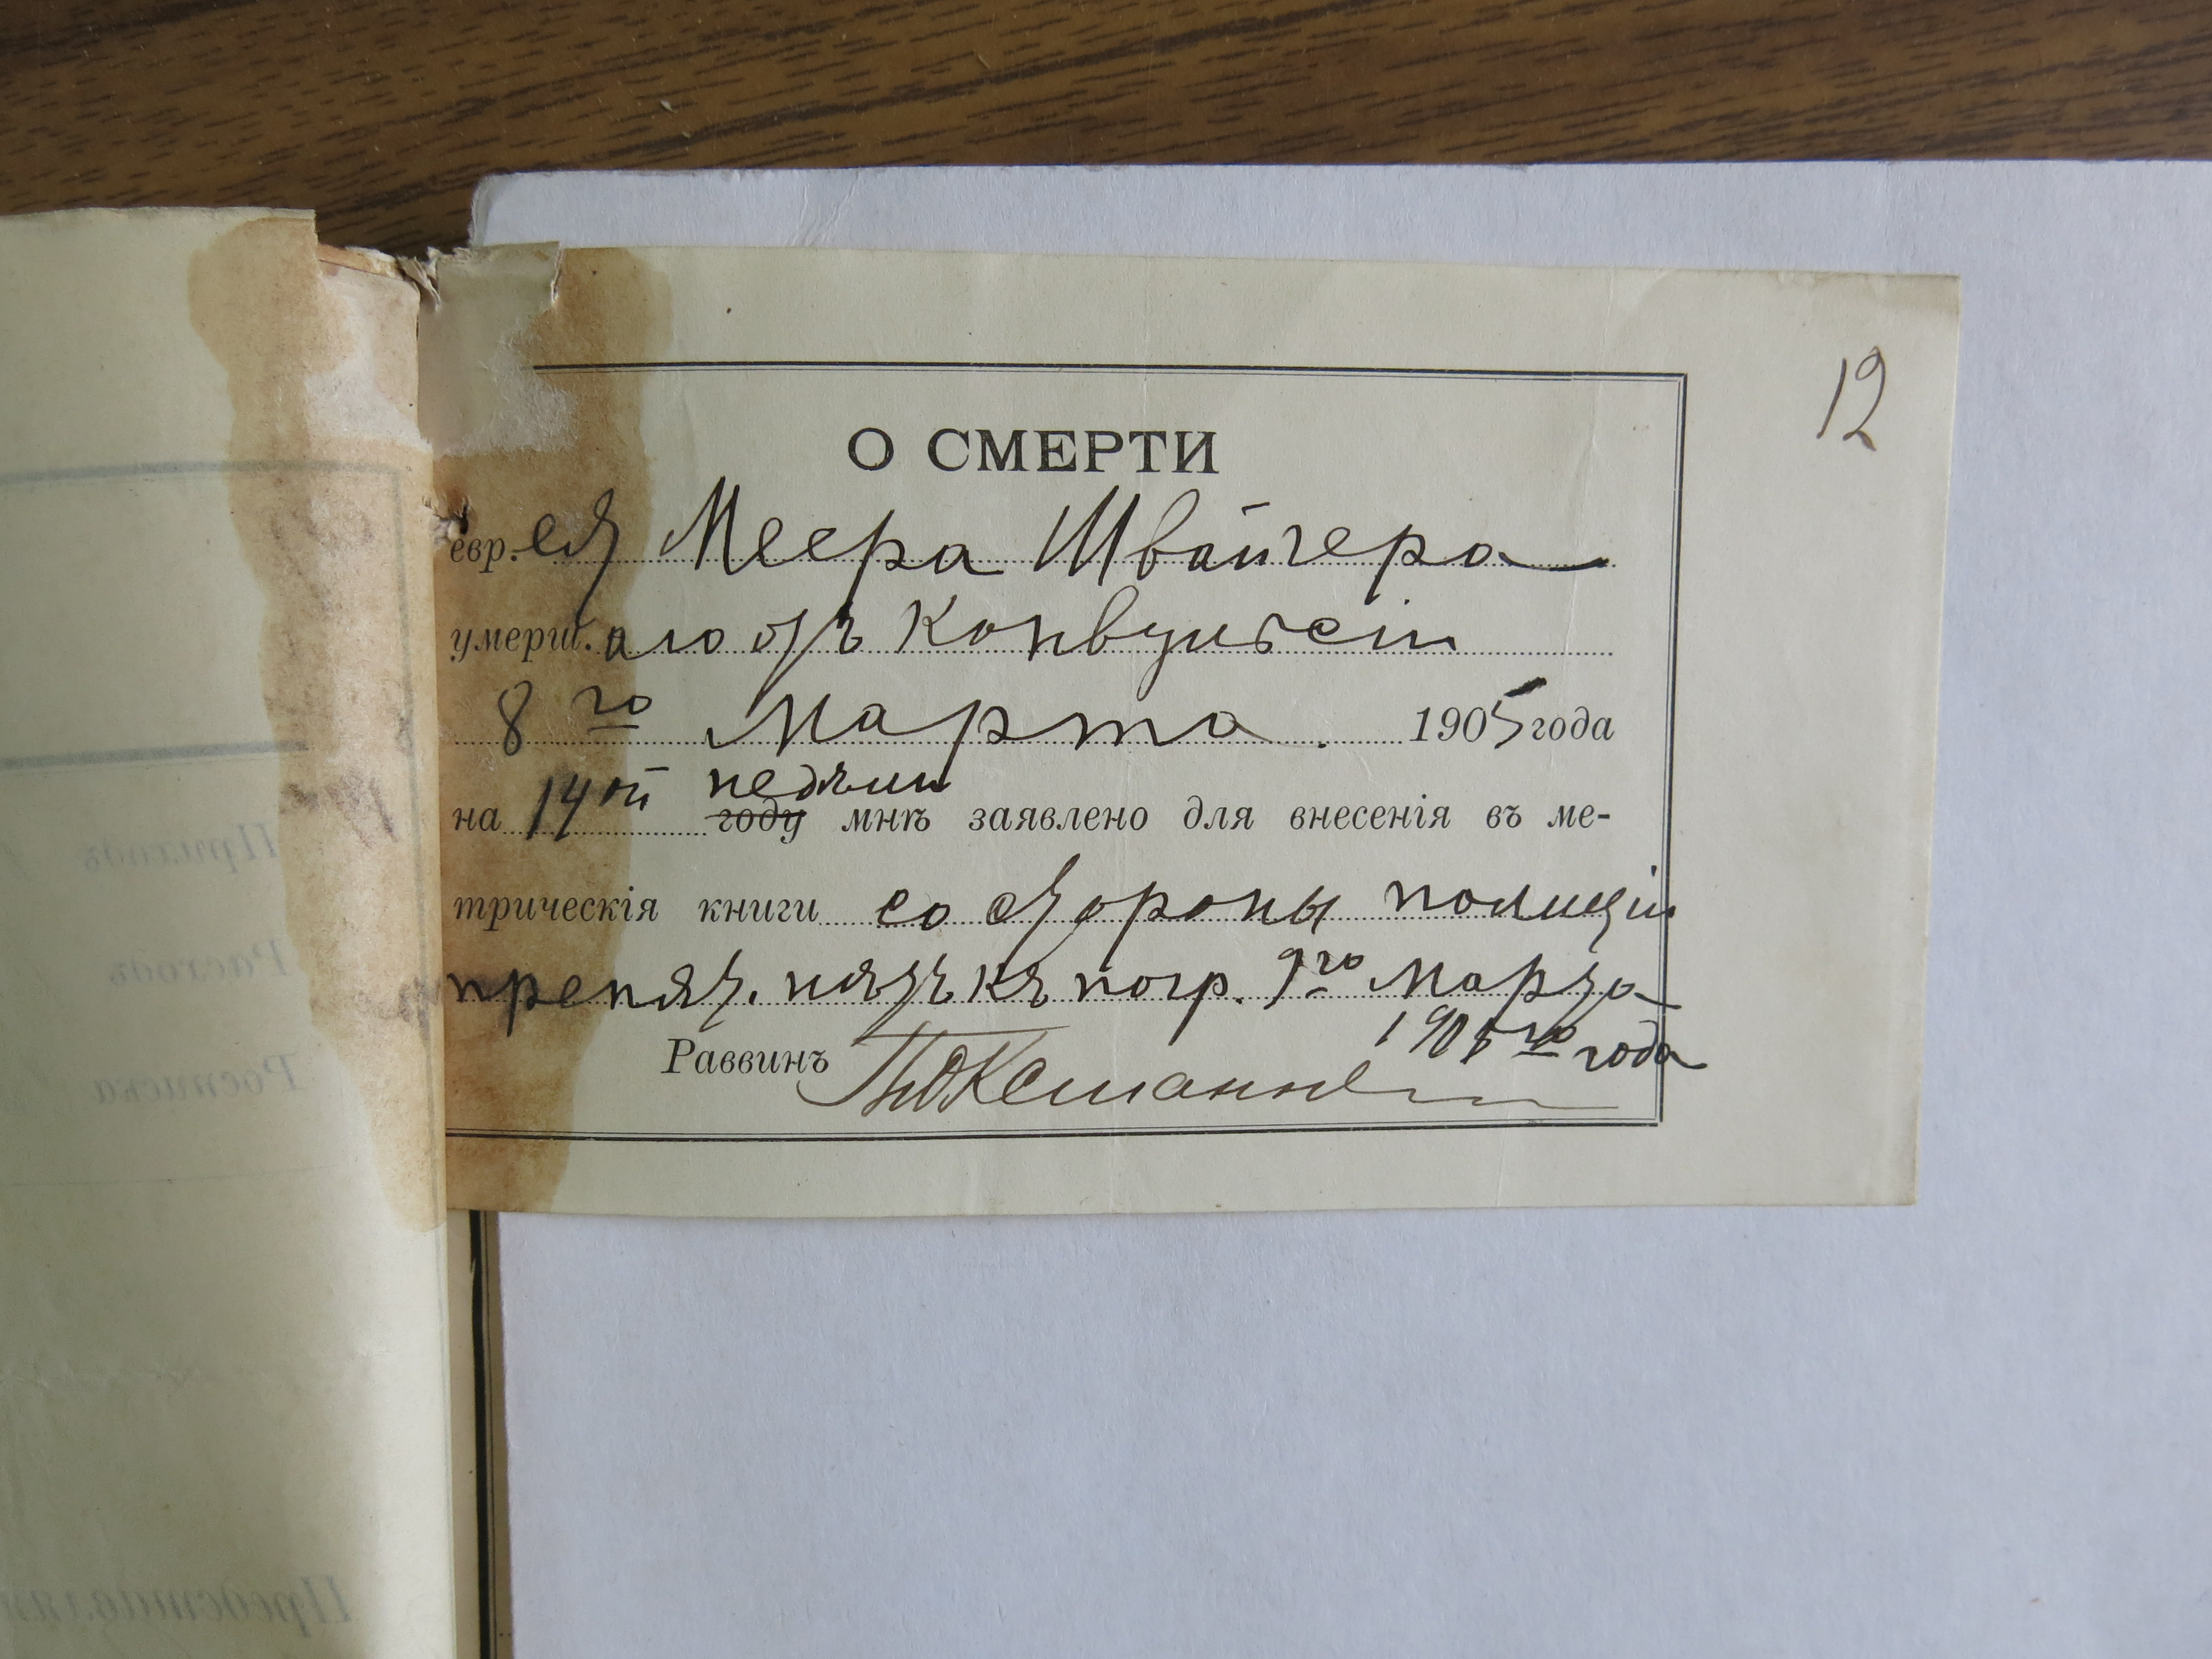 12
О СМЕРТИ
евр.ея Меера Швайгера
умерш.аго отъ Конвульсіи
8го Марта 1905 года
недѣли
на 14ой году мнѣ заявлено для внесенія въ ме-
трическія книги со стороны полиціи
препят. нѣтъ къ погр. 9го Марта
1905го года
Раввинъ
Приходъ
Расходъ
Росписка